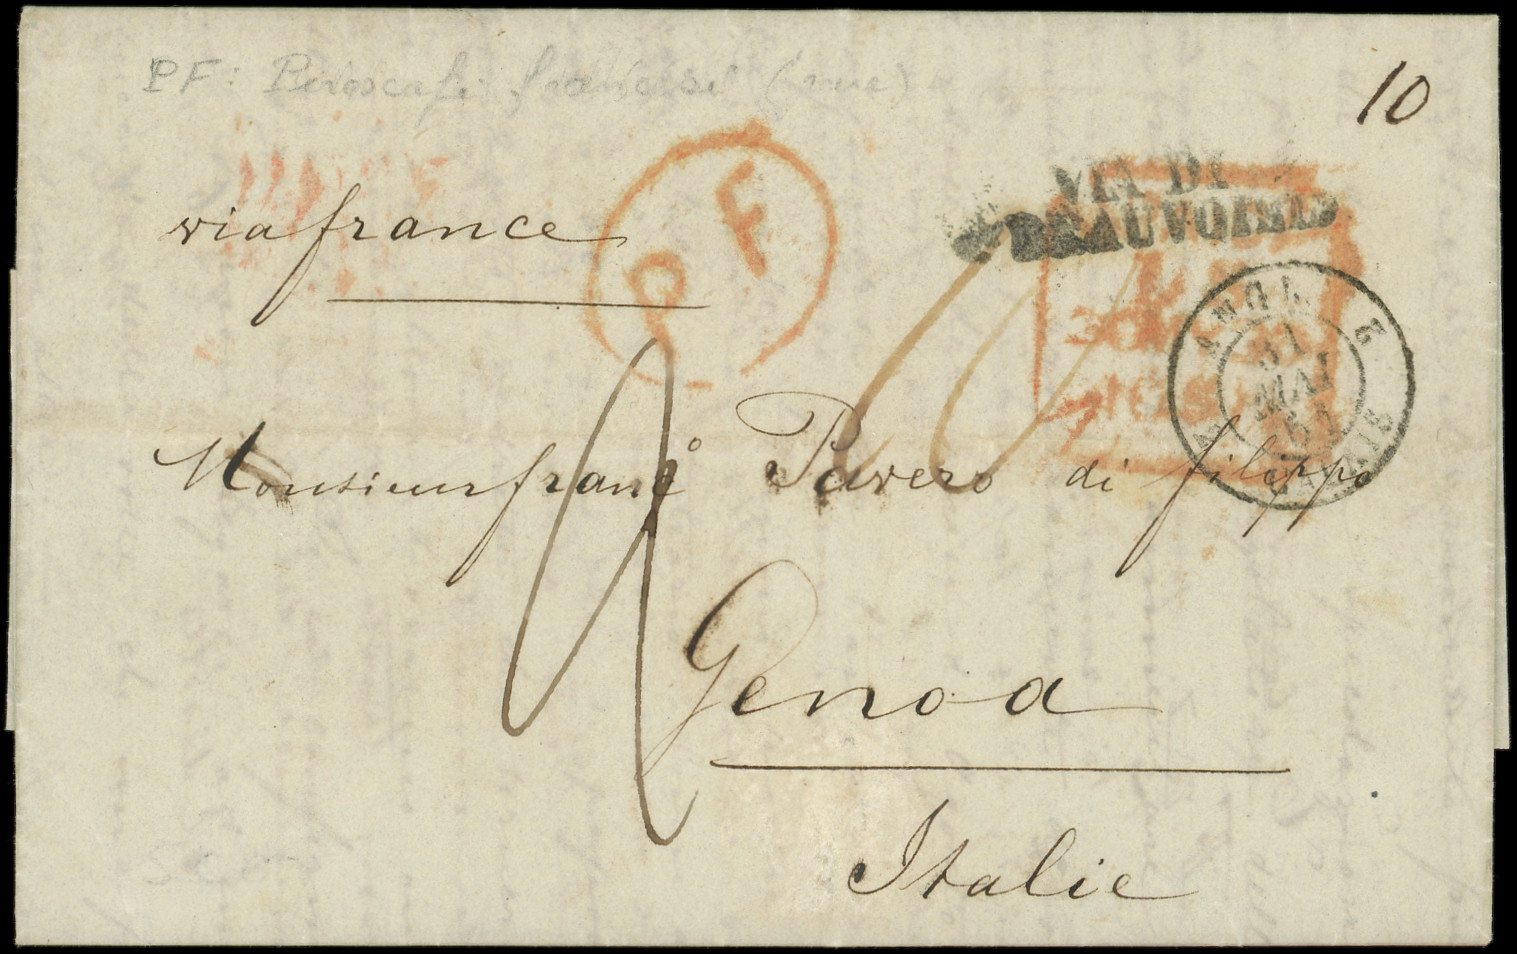 PF: Piroscafi francesi
10
via france
P F
VIA DI
BEAUVOISIN
ANGL.
31
MAI
51
CALAIS
Monsieur franco Pavero di filippo
Genoa
Italie